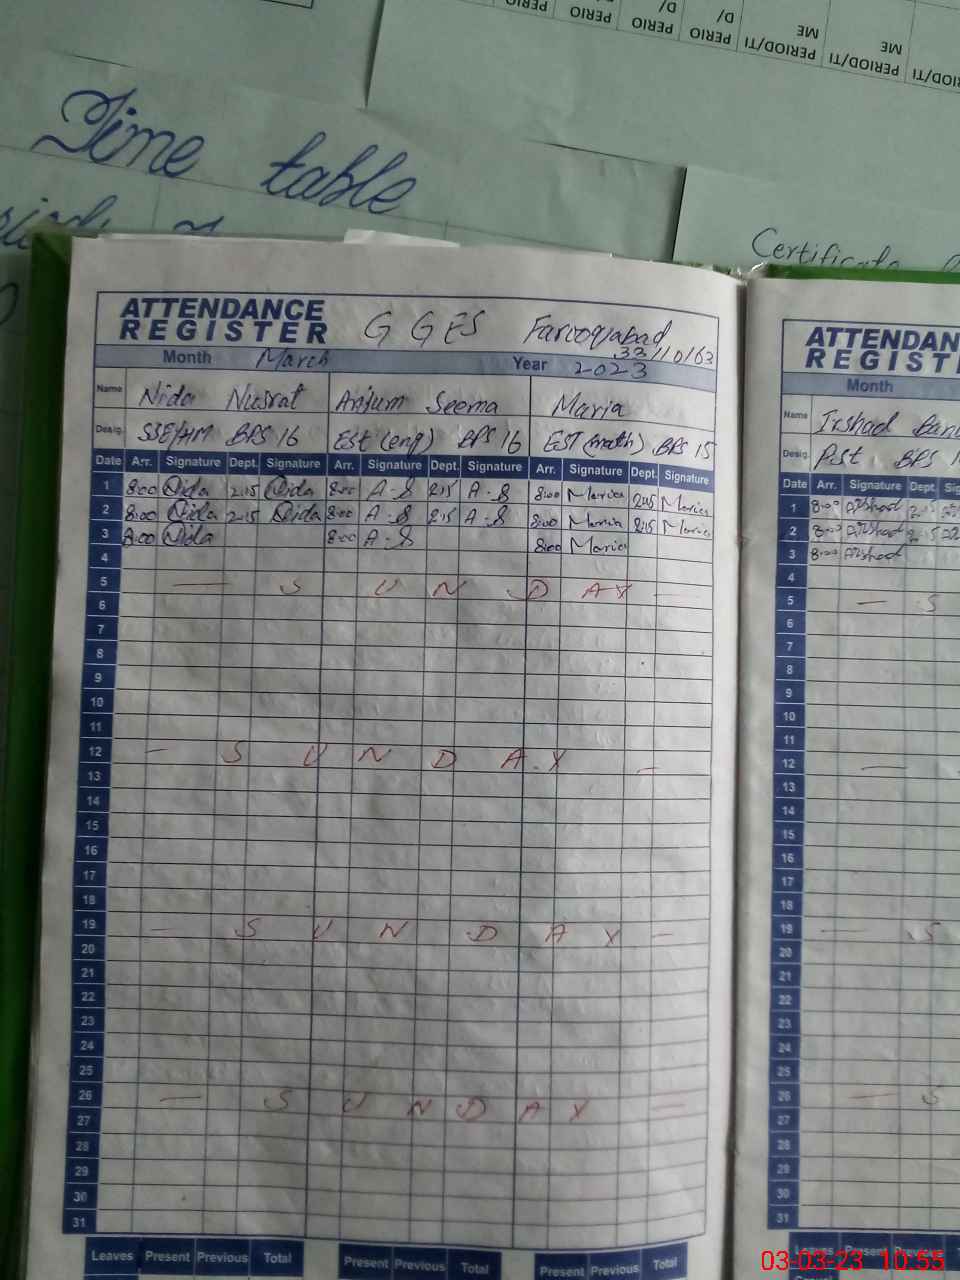 PERIO D/
PERIO
PERIO D/
PERIO D/
PERIOD/TI ME
PERIOD/TI ME
Time table
Certificate
ATTENDANCE REGISTER GGES Farooqabad
33110163
Month March Year 2023
Name Nida Nusrat Anjum Seema Maria
Desig. SSE/HM BPS 16 Est (eng) BPS 16 EST (math) BPS 15
Date Arr. Signature Dept. Signature Arr. Signature Dept. Signature Arr. Signature Dept. Signature
1 8:00 Nida 2:15 Nida 8:00 A-S 2:15 A-S 8:00 Maria 2:15 Maria
2 8:00 Nida 2:15 Nida 8:00 A-S 2:15 A-S 8:00 Maria 2:15 Maria
3 8:00 Nida 8:00 A-S 8:00 Maria
4
5 — S U N D A Y —
6
7
8
9
10
11
12 — S U N D A Y —
13
14
15
16
17
18
19 — S U N D A Y —
20
21
22
23
24
25
26 — S U N D A Y —
27
28
29
30
31
Leaves Present Previous Total Present Previous Total Present Previous Total
ATTENDAN
REGIST
Month
Name Irshad
Desig. Pst BPS
Date Arr. Signature Dept. Sig
1 8:00 Irshad
2 8:00 Irshad
3 8:00 Irshad
4
5 — S
6
7
8
9
10
11
12 —
13
14
15
16
17
18
19 — S
20
21
22
23
24
25
26 — S
27
28
29
30
31
Leaves Present Previous
03-03-23 10:55